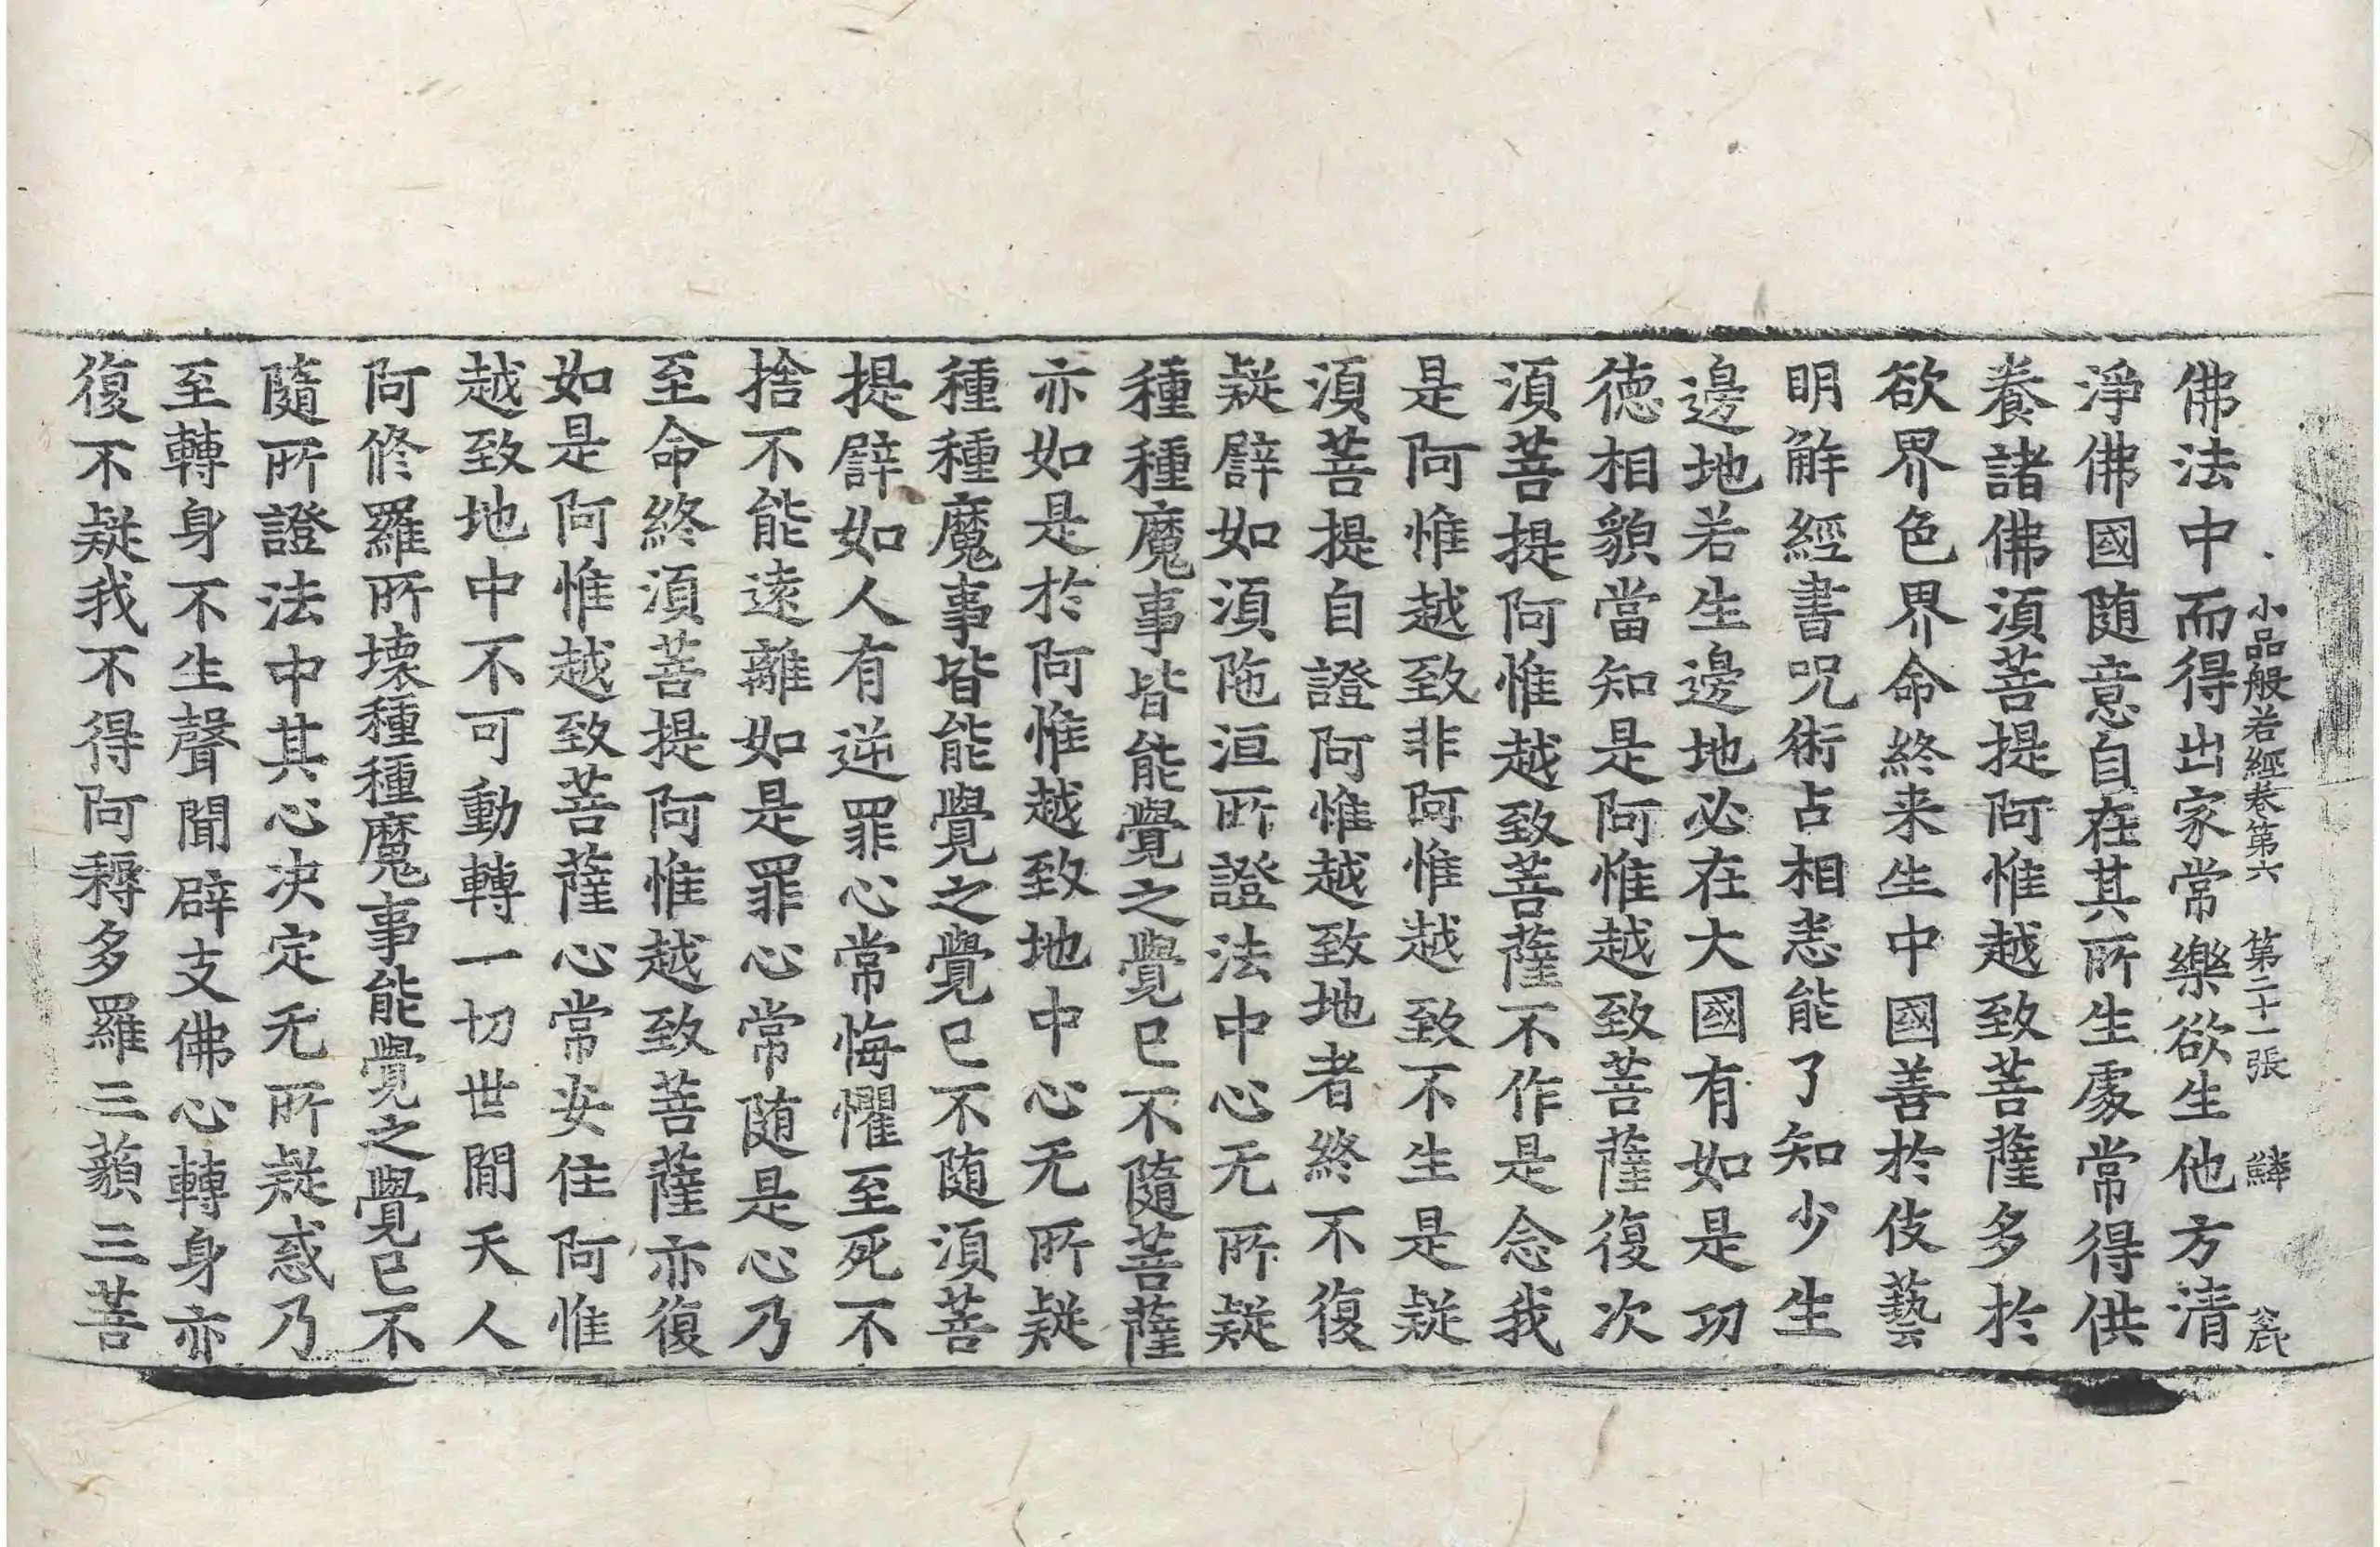 小品般若經卷第六 第二十一張 鱗
佛法中而得出家常樂欲生他方清
淨佛國随意自在其所生處常得供
養諸佛湏菩提阿惟越致菩薩多於
欲界色界命終来生中國善於伎藝
明解經書呪術占相悉能了知少生
邊地若生邊地必在大國有如是功
徳相貌當知是阿惟越致菩薩復次
湏菩提阿惟越致菩薩不作是念我
是阿惟越致非阿惟越致不生是疑
湏菩提自證阿惟越致地者終不復
疑譬如湏陁洹所證法中心无所疑
種種魔事皆能覺之覺已不隨菩薩
亦如是於阿惟越致地中心无所疑
種種魔事皆能覺之覺已不随湏菩
提譬如人有逆罪心常悔懼至死不
捨不能遠離如是罪心常随是心乃
至命終湏菩提阿惟越致菩薩亦復
如是阿惟越致菩薩心常安住阿惟
越致地中不可動轉一切世閒天人
阿修羅所壊種種魔事能覺之覺已不
隨所證法中其心决定无所疑惑乃
至轉身不生聲聞辟支佛心轉身亦
復不疑我不得阿耨多羅三藐三菩